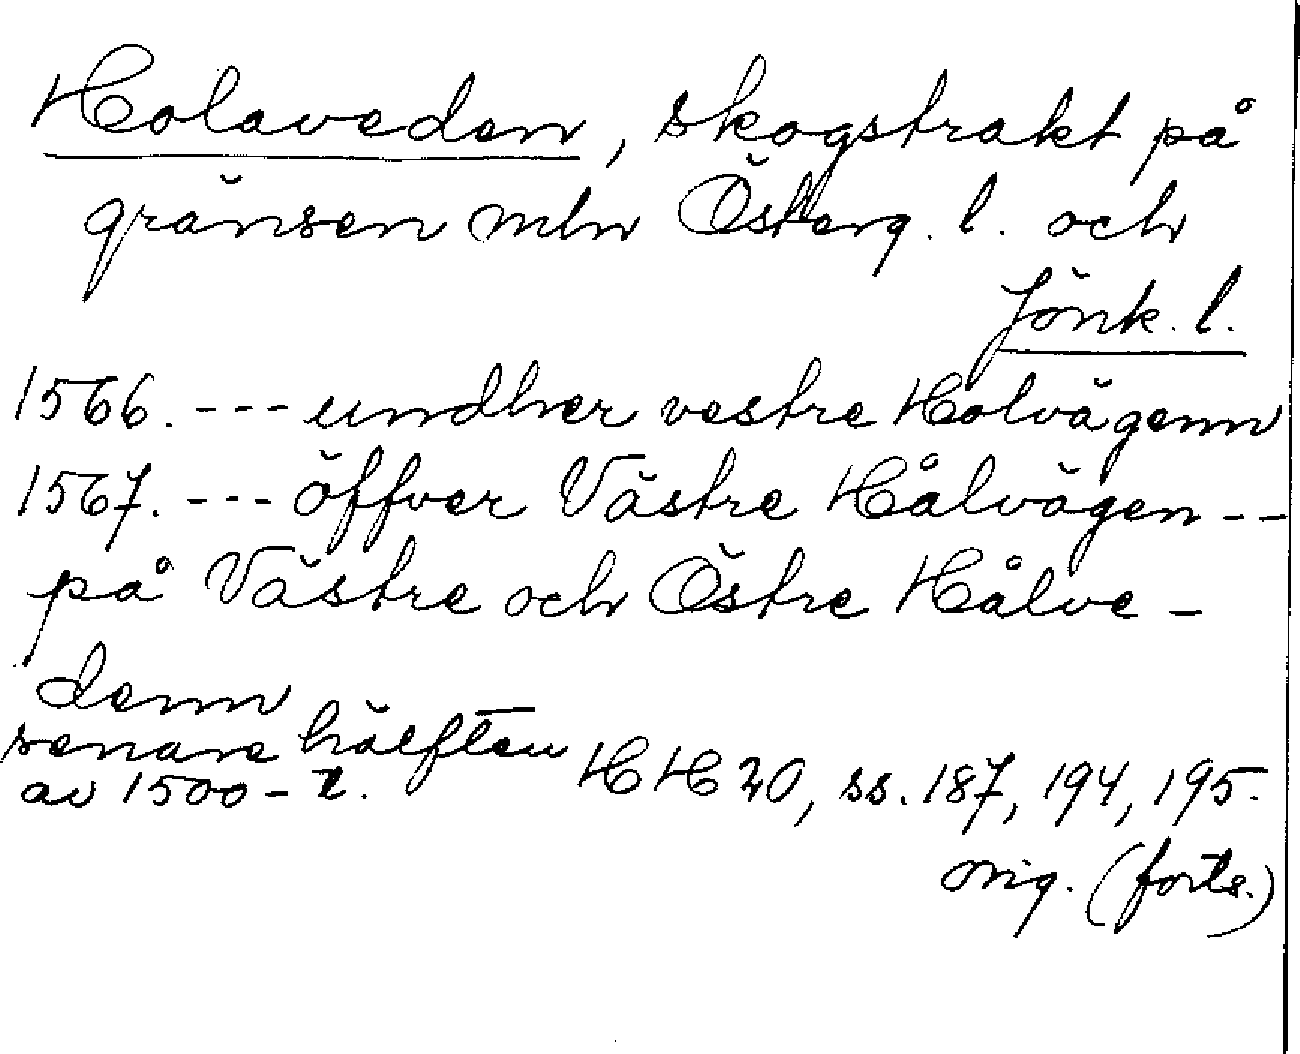 Holaveden, skogstrakt på
gränsen mln Österg. l. och
Jönk. l.
1566. --- undher vestre Holvägenn
1567. --- öffver Västre Hålvägen --
på Västre och Östre Hålve-
denn
senare hälften
av 1500-t. HH 20, ss. 187, 194, 195.
orig. (forts.)